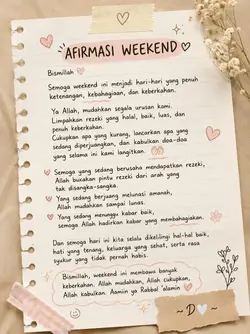 AFIRMASI WEEKEND
Bismillah
Semoga weekend ini menjadi hari-hari yang penuh
ketenangan, kebahagiaan, dan keberkahan.
Ya Allah, mudahkan segala urusan kami.
Limpahkan rezeki yang halal, baik, luas, dan
penuh keberkahan.
Cukupkan apa yang kurang, lancarkan apa yang
sedang diperjuangkan, dan kabulkan doa-doa
yang selama ini kami langitkan.
Semoga yang sedang berusaha mendapatkan rezeki,
Allah bukakan pintu rezeki dari arah yang
tak disangka-sangka.
Yang sedang berjuang melunasi amanah,
Allah mudahkan sampai lunas.
Yang sedang menunggu kabar baik,
semoga Allah hadirkan kabar yang membahagiakan.
Dan semoga hari ini kita selalu dikelilingi hal-hal baik,
hati yang tenang, keluarga yang sehat, serta rasa
syukur yang tidak pernah habis.
Bismillah, weekend ini membawa banyak
keberkahan. Allah mudahkan, Allah cukupkan,
Allah kabulkan. Aamiin ya Rabbal 'alamin
~ D